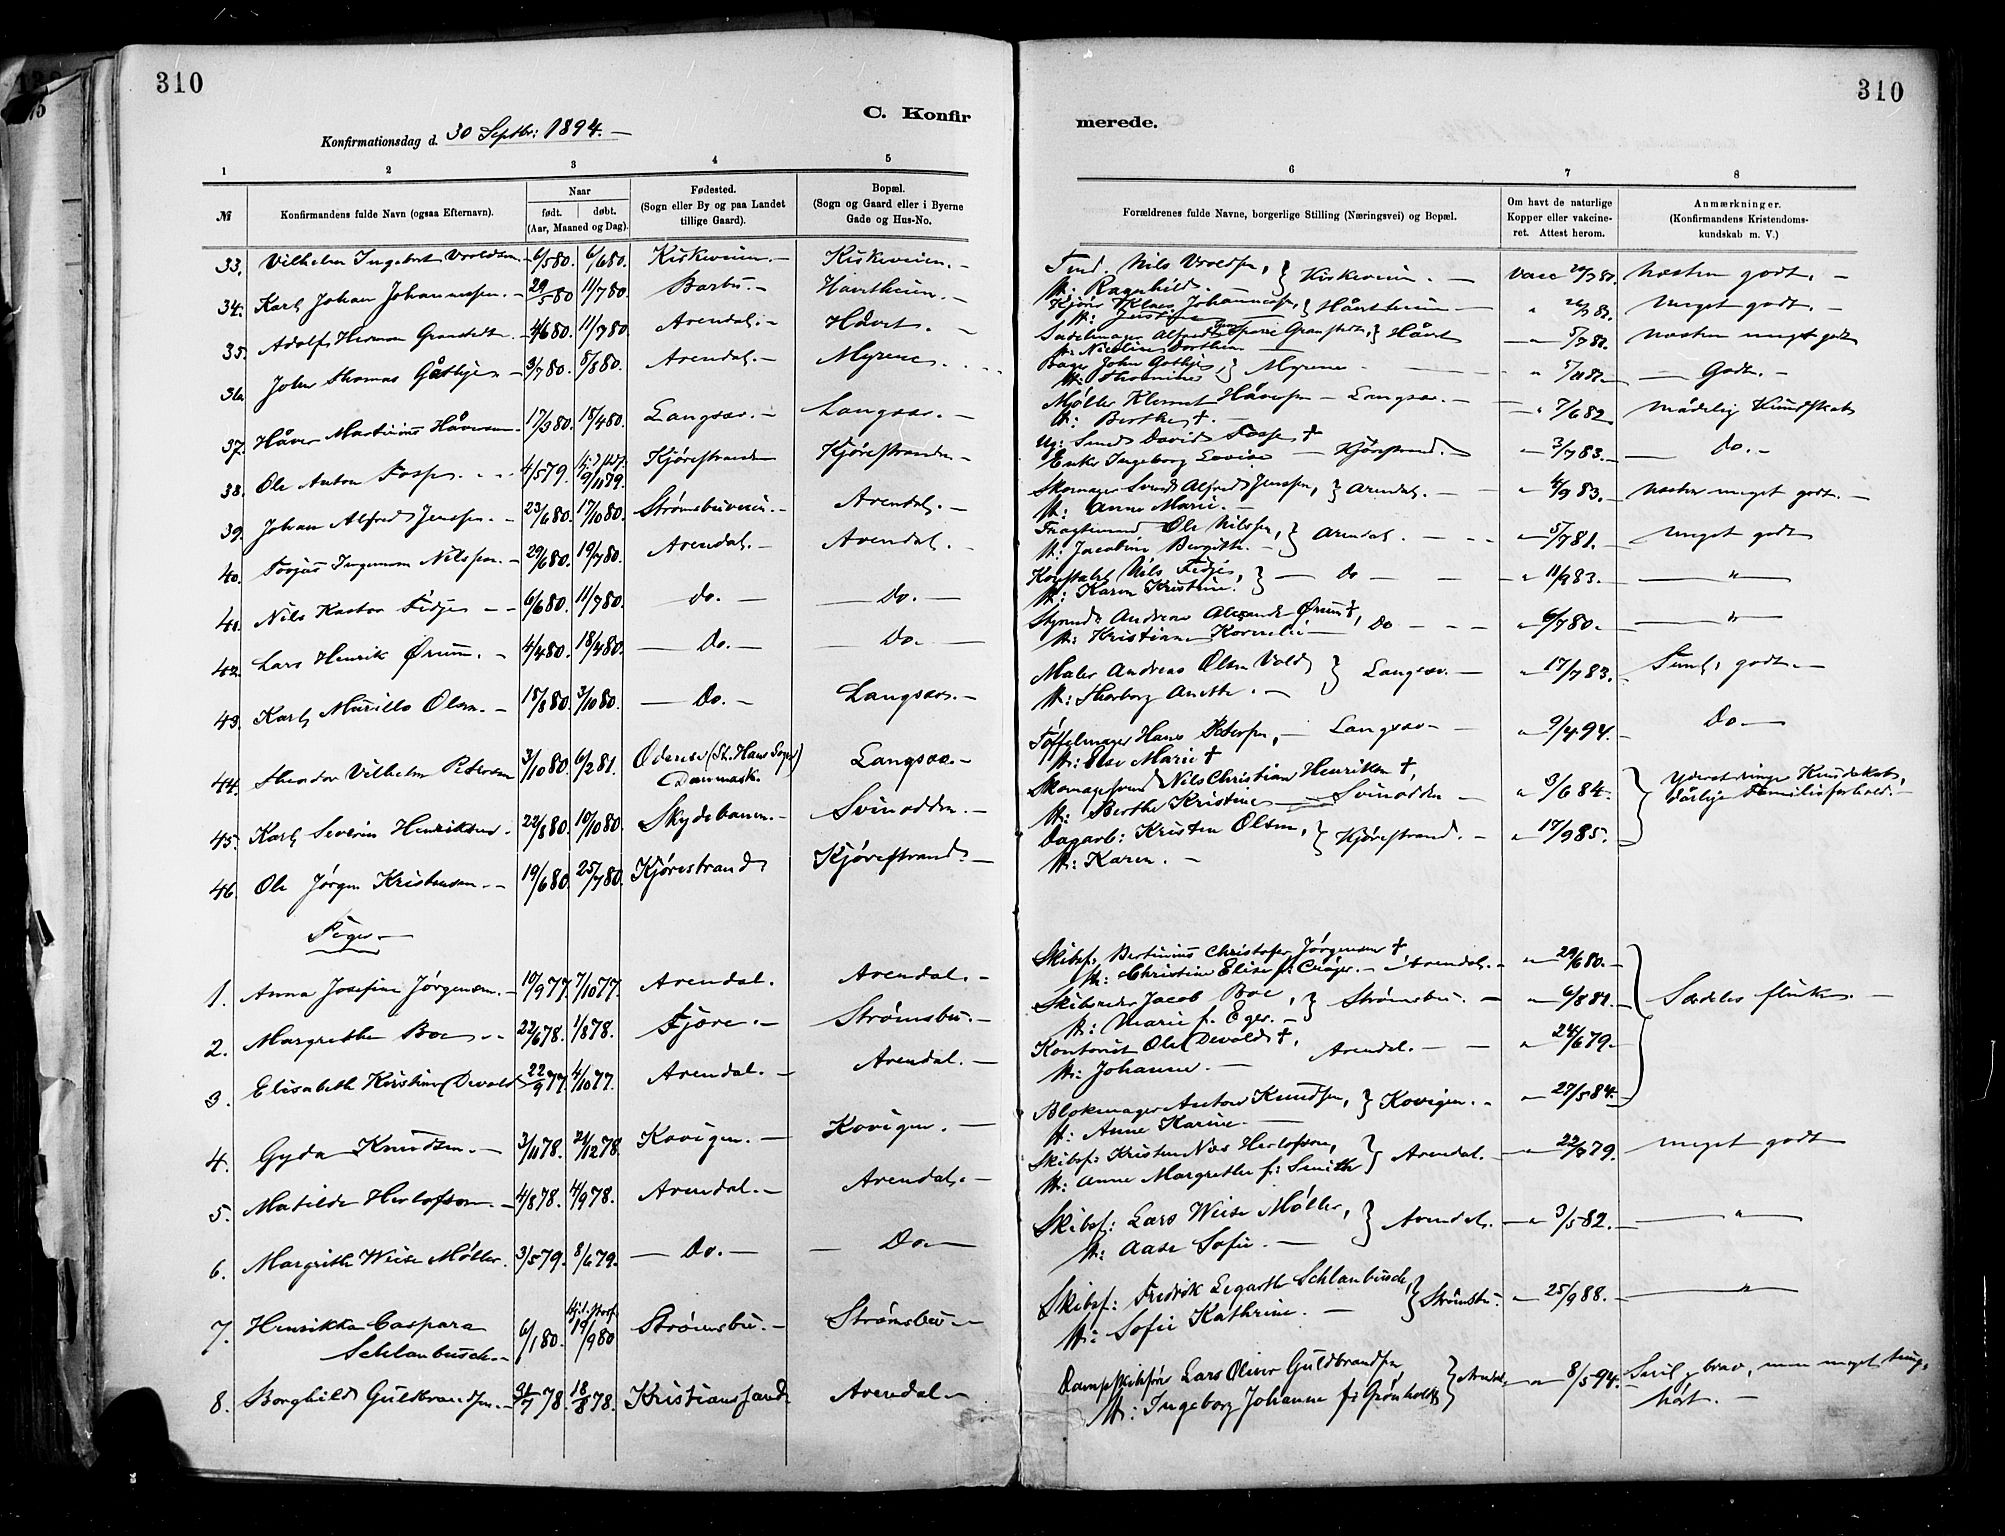 310
310
C. Konfir
merede.
Konfirmationsdag d. 30 Septbr: 1894. —
1 2 3 4 5
6 7 8
№
Konfirmandens fulde Navn (ogsaa Efternavn).
Naar
født. døbt.
(Aar, Maaned og Dag).
Fødested.
(Sogn eller By og paa Landet
tillige Gaard).
Bopæl.
(Sogn og Gaard eller i Byerne
Gade og Hus-No.
Forældrenes fulde Navne, borgerlige Stilling (Næringsvei) og Bopæl.
Om havt de naturlige
Kopper eller vakcine-
ret. Attest herom.
Anmærkninger.
(Konfirmandens Kristendoms-
kundskab m. V.)
33. Vilhelm Ingebret 6/5 80. 6/6 80. Kiskeveien. — Kiskeveien. —
Nils Vroldsen, } Kiskeveien. — Vacc næsten godt. —
H: Ragnhild. —
34. Karl Johan Johannessen. — 29/5 80 11/7 80. Barbu. —
Johannessen, } meget godt. —
35. Adolf Herman 4/6 80. 11/7 80. Arendal. — Håvet. —
Sadelmager Alfred } Håvet " 5/7 82. næsten meget godt
H: Nicoline Dorthea
36. John Thomas 3/7 80. 8/8 80. Arendal. — Myrene.
Bager John } Myrene. — Godt. —
37. Håver Martinius Håversen — 17/3 80. 18/4 80. Langsæv. — Langsæv. —
Møller Klemet Håversen — Langsæv. — " 7/6 82. mådelig Kundskab
H: Berthe †. —
38. Ole Anton Fosse. 4/5 79. 9/11 79. Kjørestranden Kjørestranden —
Smed David Fosse †
Enke Ingeborg Lovise — Kjørestrand. " 3/7 83. — Do. —
39. Johan Alfred Jenssen. — 23/6 80. 17/10 80. Strømsbuveien. — Arendal. —
Skomager Svend Alfred Jenssen, } Arendal. — " 4/9 83. — næsten meget godt. —
H: Anne Marie. —
40. Torjus Ingeman Nilssen. — 29/6 80. 19/7 80. Arendal. — Arendal. —
Fragtemand Ole Nilssen, } Arendal. — " 5/7 81. — meget godt
H: Jacobine Bergithe. —
41. Nils Kastor Fidje — 6/6 80. 11/7 80. — Do. — — Do. —
Konstabel Nils Fidje, } — Do — " 11/9 83. — "
H: Karen Kristine.
42. Lars Henrik Ørum. — 4/4 80. 18/4 80. — Do. — — Do. —
Styrmd: Andreas Alexander Ørum †, " 6/7 80. — "
H: Kristiane Kornelie — Do —
43. Karl Murillo Olsen. — 15/8 80. 3/10 80. — Do. — Langsæv. —
Maler Andreas Olsen Vold } Langsæv. — " 17/7 83. — Temel. godt. —
H: Thorborg Anethe. —
44. Theodor Vilhelm Petersen 3/10 80. 6/2 81. Odense (St. Hans Sogn) Langsæv. —
Danmark.
Tøffelmager Hans Petersen, — Langsæv — " 9/4 94. — Do —
H: Else Marie †
45. Karl Severin Henriksen. 22/8 80. 10/10 80. Skydebanen. — Svinodden. —
Skomagersvend Nils Christian Henriksen †, " 3/6 84. — } Yderst ringe Kundskab,
H: Berthe Kristine — Svinodden — dårlige Familieforhold. —
46. Ole Jørgen Kristensen. — 19/6 80. 25/7 80. Kjørestrand Kjørestrand. —
Dagarb: Kristen Olsen, } Kjørestrand. — " 17/9 85. —
H: Karen. —
Piger. —
1. Anna Josefine Jørgensen. — 10/9 77. 7/10 77. Arendal. Arendal. —
Skibsf: Bertinius Christofer Jørgensen † " 29/6 80. —
H: Christine Elise f: Crøger. — Arendal. —
2. Margrethe Boe — 22/6 78. 1/8 78. Fjære. — Strømsbu. —
Skibsreder Jacob Boe, } Strømsbu. — " 6/8 81. — Særdeles flink. —
H: Marie f. Eger. —
3. Elisabeth Kristine Devold 22/9 77. 4/10 77. Arendal. — Arendal. —
Kontorist Ole Devold †, Arendal. — " 24/6 79. —
H: Johanne. —
4. Gyda Knudsen. — 3/11 78. 21/12 78. Kovigen. — Kovigen. —
Blokmager Anton Knudsen, } Kovigen. — " 27/5 84. —
H: Anne Karine. —
5. Matilde Herlofson. — 4/8 78. 4/9 78. Arendal. — Arendal. —
Skibsf: Kristen Næs Herlofson, } Arendal. — meget godt
H: Anne Margrethe f: Smith
6. Margrethe Weise Møller. 3/5 79. 8/6 79. — Do. — — Do —
Skibsf: Lars Weise Møller, } Arendal. — " 3/5 82. — "
H: Aase Sofie. —
7. Henrikka Caspara 6/1 80. 19/9 80 Strømsbu. — Strømsbu —
Schlanbusch. —
Skibsf: Fredrik Schlanbusch, } Strømsbu. " 25/9 88. — "
H: Sofie Kathrine. —
8. Borghild Guldbrandsen. — 31/7 78. 18/8 78. Kristianssand. Arendal. —
Dampskibsfør. Lars Oliver Guldbrandsen, } Arendal. — " 8/5 94. — Snil, brav, men meget tung-
H: Ingeborg Johanne f: Grønholdt hørt. —